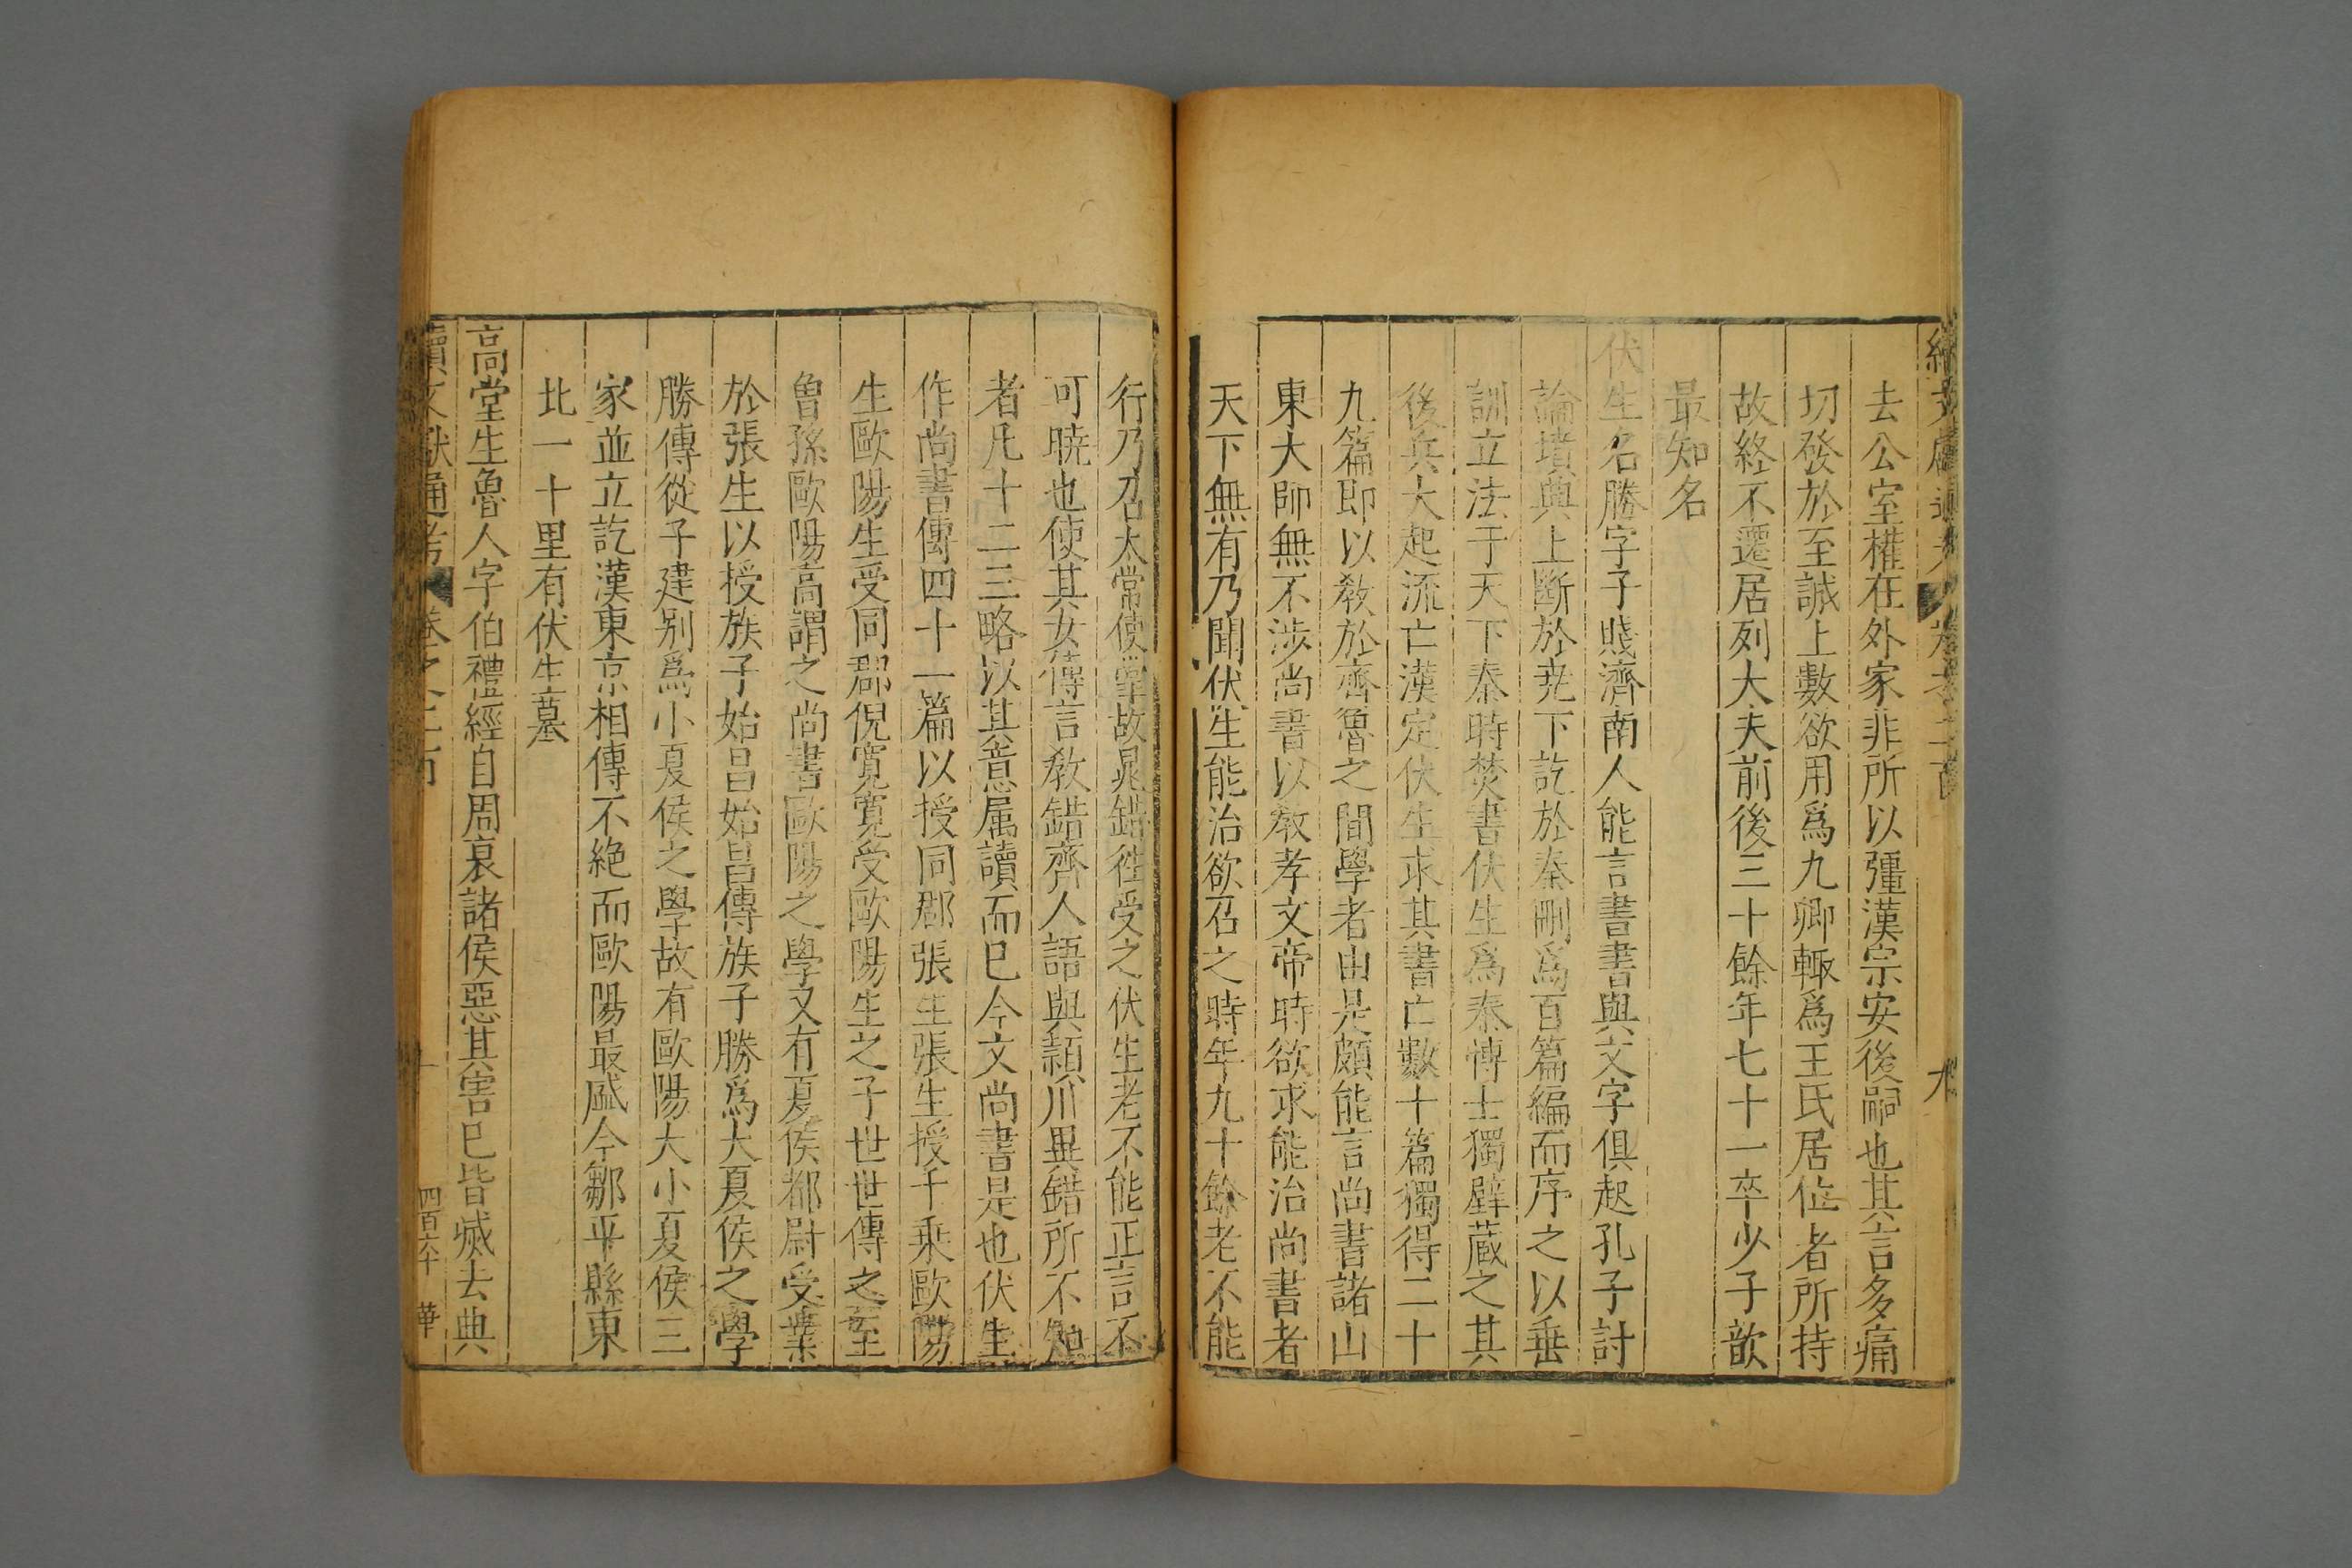 去公室權在外家非所以彊漢宗安後嗣也其言多痛
切發於至誠上數欲用爲九卿輙爲王氏居位者所持
故終不遷居列大夫前後三十餘年七十一卒少子歆
最知名
伏生名勝字子賤濟南人能言書書與文字俱起孔子討
論墳典上斷於尭下訖於秦刪爲百篇編而序之以垂
訓立法于天下秦時焚書伏生爲秦博士獨壁蔵之其
後兵大起流亡漢定伏生求其書亡數十篇獨得二十
九篇即以敎於齊魯之間學者由是頗能言尚書諸山
東大師無不涉尚書以敎孝文帝時欲求能治尚書者
天下無有乃聞伏生能治欲召之時年九十餘老不能
行乃召太常使掌故晁錯徃受之伏生老不能正言不
可曉也使其女傳言敎錯齊人語與頴川異錯所不知
者凡十二三略以其意属讀而巳今文尚書是也伏生
作尚書傳四十一篇以授同郡張生張生授千乗歐陽
生歐陽生受同郡倪寛寛受歐陽生之子世世傳之至
曾孫歐陽高謂之尚書歐陽之學又有夏侯都尉受業
於張生以授族子始昌始昌傳族子勝爲大夏侯之學
勝傳從子建別爲小夏侯之學故有歐陽大小夏侯三
家並立訖漢東京相傳不絶而歐陽最盛今鄒平縣東
北一十里有伏生墓
高堂生魯人字伯禮經自周衰諸侯惡其害巳皆滅去典
續文献通考 卷之二百
四百六十 華